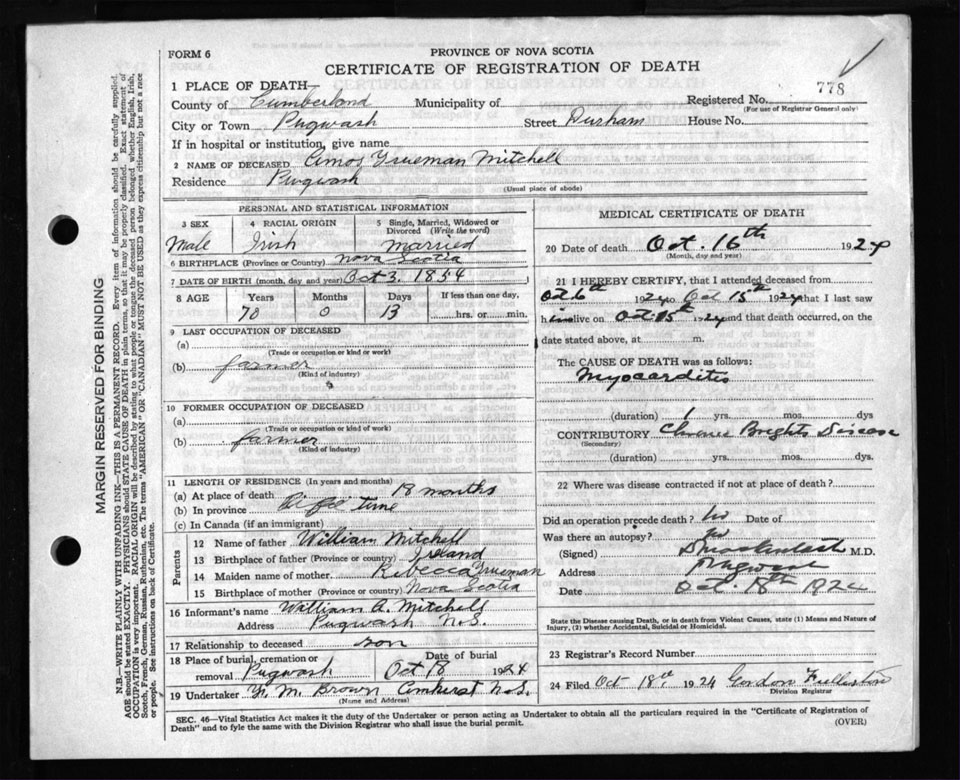 FORM 6
PROVINCE OF NOVA SCOTIA
CERTIFICATE OF REGISTRATION OF DEATH
778
1 PLACE OF DEATH
County of Cumberland Municipality of Registered No.
(For use of Registrar General only)
City or Town Pugwash Street Durham House No.
If in hospital or institution, give name
2 NAME OF DECEASED Amos Trueman Mitchell
Residence Pugwash
(Usual place of abode)
PERSONAL AND STATISTICAL INFORMATION
3 SEX 4 RACIAL ORIGIN 5 Single, Married, Widowed or Divorced (Write the word)
Male Irish Married
6 BIRTHPLACE (Province or Country) Nova Scotia
7 DATE OF BIRTH (month, day and year) Oct 3. 1854
8 AGE Years Months Days If less than one day,
70 0 13 hrs. or min.
9 LAST OCCUPATION OF DECEASED
(a)
(Trade or occupation or kind or work)
(b) farmer
(Kind of industry)
10 FORMER OCCUPATION OF DECEASED
(a)
(Trade or occupation or kind or work)
(b) farmer
(Kind of industry)
11 LENGTH OF RESIDENCE (In years and months)
(a) At place of death 18 months
(b) In province Life time
(c) In Canada (if an immigrant)
Parents
12 Name of father William Mitchell
13 Birthplace of father (Province or country) Ireland
14 Maiden name of mother Rebecca Trueman
15 Birthplace of mother (Province or country) Nova Scotia
16 Informant's name William A. Mitchell
Address Pugwash N.S.
17 Relationship to deceased son
18 Place of burial, cremation or removal Pugwash Date of burial Oct 18 1924
19 Undertaker M. Brown Amherst N.S.
(Name and Address)
MEDICAL CERTIFICATE OF DEATH
20 Date of death Oct. 16th 1924
(Month, day and year)
21 I HEREBY CERTIFY, that I attended deceased from
Oct 6th 1924 Oct 15th 1924 that I last saw
him alive on Oct. 15th 1924 and that death occurred, on
date stated above, at m.
The CAUSE OF DEATH was as follows:
Myocarditis
(duration) 1 yrs. mos. dys
CONTRIBUTORY Chronic Brights Disease
(Secondary)
(duration) yrs. mos. dys.
22 Where was disease contracted if not at place of death?
Did an operation precede death? no Date of
Was there an autopsy? no
(Signed) M.D.
Address Pugwash
Date Oct. 18th 1924
State the Disease causing Death, or in death from Violent Causes, state (1) Means and Nature of Injury, (2) whether Accidental, Suicidal or Homicidal.
23 Registrar's Record Number
24 Filed Oct 18th 1924 Gordon
Division Registrar
SEC. 46—Vital Statistics Act makes it the duty of the Undertaker or person acting as Undertaker to obtain all the particulars required in the "Certificate of Registration of Death" and to fyle the same with the Division Registrar who shall issue the burial permit.
(OVER)
MARGIN RESERVED FOR BINDING
N.B.—WRITE PLAINLY WITH UNFADING INK—THIS IS A PERMANENT RECORD. Every item of information should be carefully supplied.
AGE should be stated EXACTLY. PHYSICIANS should STATE CAUSE OF DEATH in plain terms, so that it may be properly classified. Exact statement of
OCCUPATION is very important. RACIAL ORIGIN will be described by stating to what people or tongue the deceased person belonged whether English, Irish,
Scotch, French, German, Russian, Ruthenian, etc. The terms "AMERICAN" OR "CANADIAN" MUST NOT BE USED as they express citizenship but not a race
or people. See instructions on back of Certificate.